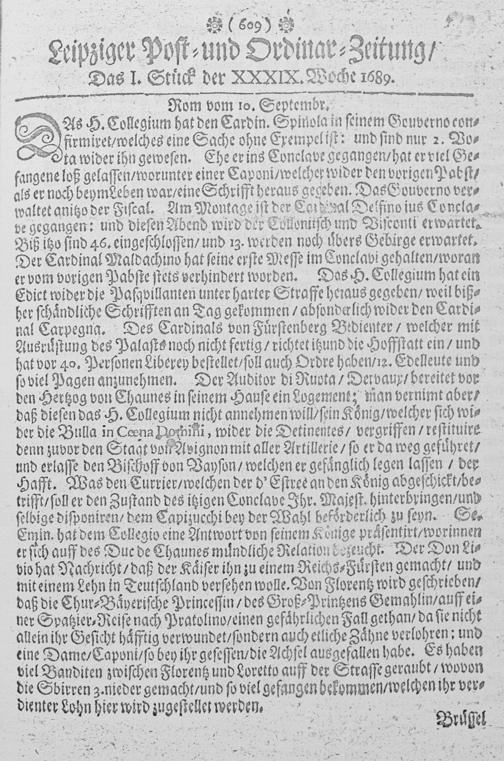 (609)
Leipziger Post- und Ordinar-Zeitung/
Das I. Stück der XXXIX. Woche 1689.
Rom vom 10. Septembr.
DAs H. Collegium hat den Cardin. Spinola in seinem Gouverno con-
firmiret/welches eine Sache ohne Exempel ist: und sind nur 2. Vo-
ta wider ihn gewesen. Ehe er ins Conclave gegangen/hat er viel Ge-
fangene loß gelassen/worunter einer Caponi/welcher wider den vorigen Pabst/
als er noch beym Leben war/eine Schrifft heraus gegeben. Das Gouverno ver-
waltet anitzo der Fiscal. Am Montage ist der Cardinal Delfino ius Concla-
ve gegangen: und diesen Abend wird der Collonitsch und Visconti erwartet.
Biß itzo sind 46. eingeschlossen/und 13. werden noch übers Gebirge erwartet.
Der Cardinal Maldachino hat seine erste Messe im Conclavi gehalten/woran
er vom vorigen Pabste stets verhindert worden. Das H. Collegium hat ein
Edict wider die Pasqvillanten unter harter Straffe heraus gegeben/weil biß-
her schändliche Schrifften an Tag gekommen/absonderlich wider den Cardi-
nal Carpegna. Des Cardinals von Fürstenberg Bedienter/welcher mit
Ausrüstung des Palasts noch nicht fertig/richtet itzund die Hoffstatt ein/und
hat vor 40. Personen Liberey bestellet/soll auch Ordre haben/12. Edelleute und
so viel Pagen anzunehmen. Der Auditor di Ruota/Dervaux/bereitet vor
den Hertzog von Chaunes in seinem Hause ein Logement; man vernimt aber/
daß diesen das H. Collegium nicht annehmen will/sein König/welcher sich wi-
der die Bulla in Coena Domini, wider die Detinentes/vergriffen/restituire
denn zuvor den Staat von Avignon mit aller Artillerie/so er da weg geführet/
und erlasse den Bischoff von Vayson/welchen er gefänglich legen lassen/der
Hafft. Was den Currier/welchen der d'Estree an den König abgeschickt/be-
trifft/soll er den Zustand des itzigen Conclave Ihr. Majest. hinterbringen/und
selbige disponiren/dem Capizucchi bey der Wahl beförderlich zu seyn. Se-
Emin. hat dem Collegio eine Antwort von seinem Könige präsentirt/worinnen
er sich auff des Duc de Chaunes mündliche Relation bezeucht. Der Don Li-
vio hat Nachricht/daß der Käiser ihn zu einem Reichs-Fürsten gemacht/und
mit einem Lehn in Teutschland versehen wolle. Von Florentz wird geschrieben/
daß die Chur-Bäyerische Princessin/des Groß-Printzens Gemahlin/auff ei-
ner Spatzier-Reise nach Pratolino/einen gefährlichen Fall gethan/da sie nicht
allein ihr Gesicht häfftig verwundet/sondern auch etliche Zähne verlohren: und
eine Dame/Caponi/so bey ihr gesessen/die Achsel ausgefallen habe. Es haben
viel Banditen zwischen Florentz und Loretto auff der Strasse geraubt/wovon
die Sbirren 3. nieder gemacht/und so viel gefangen bekommen/welchen ihr ver-
dienter Lohn hier wird zugestellet werden.
Brüssel